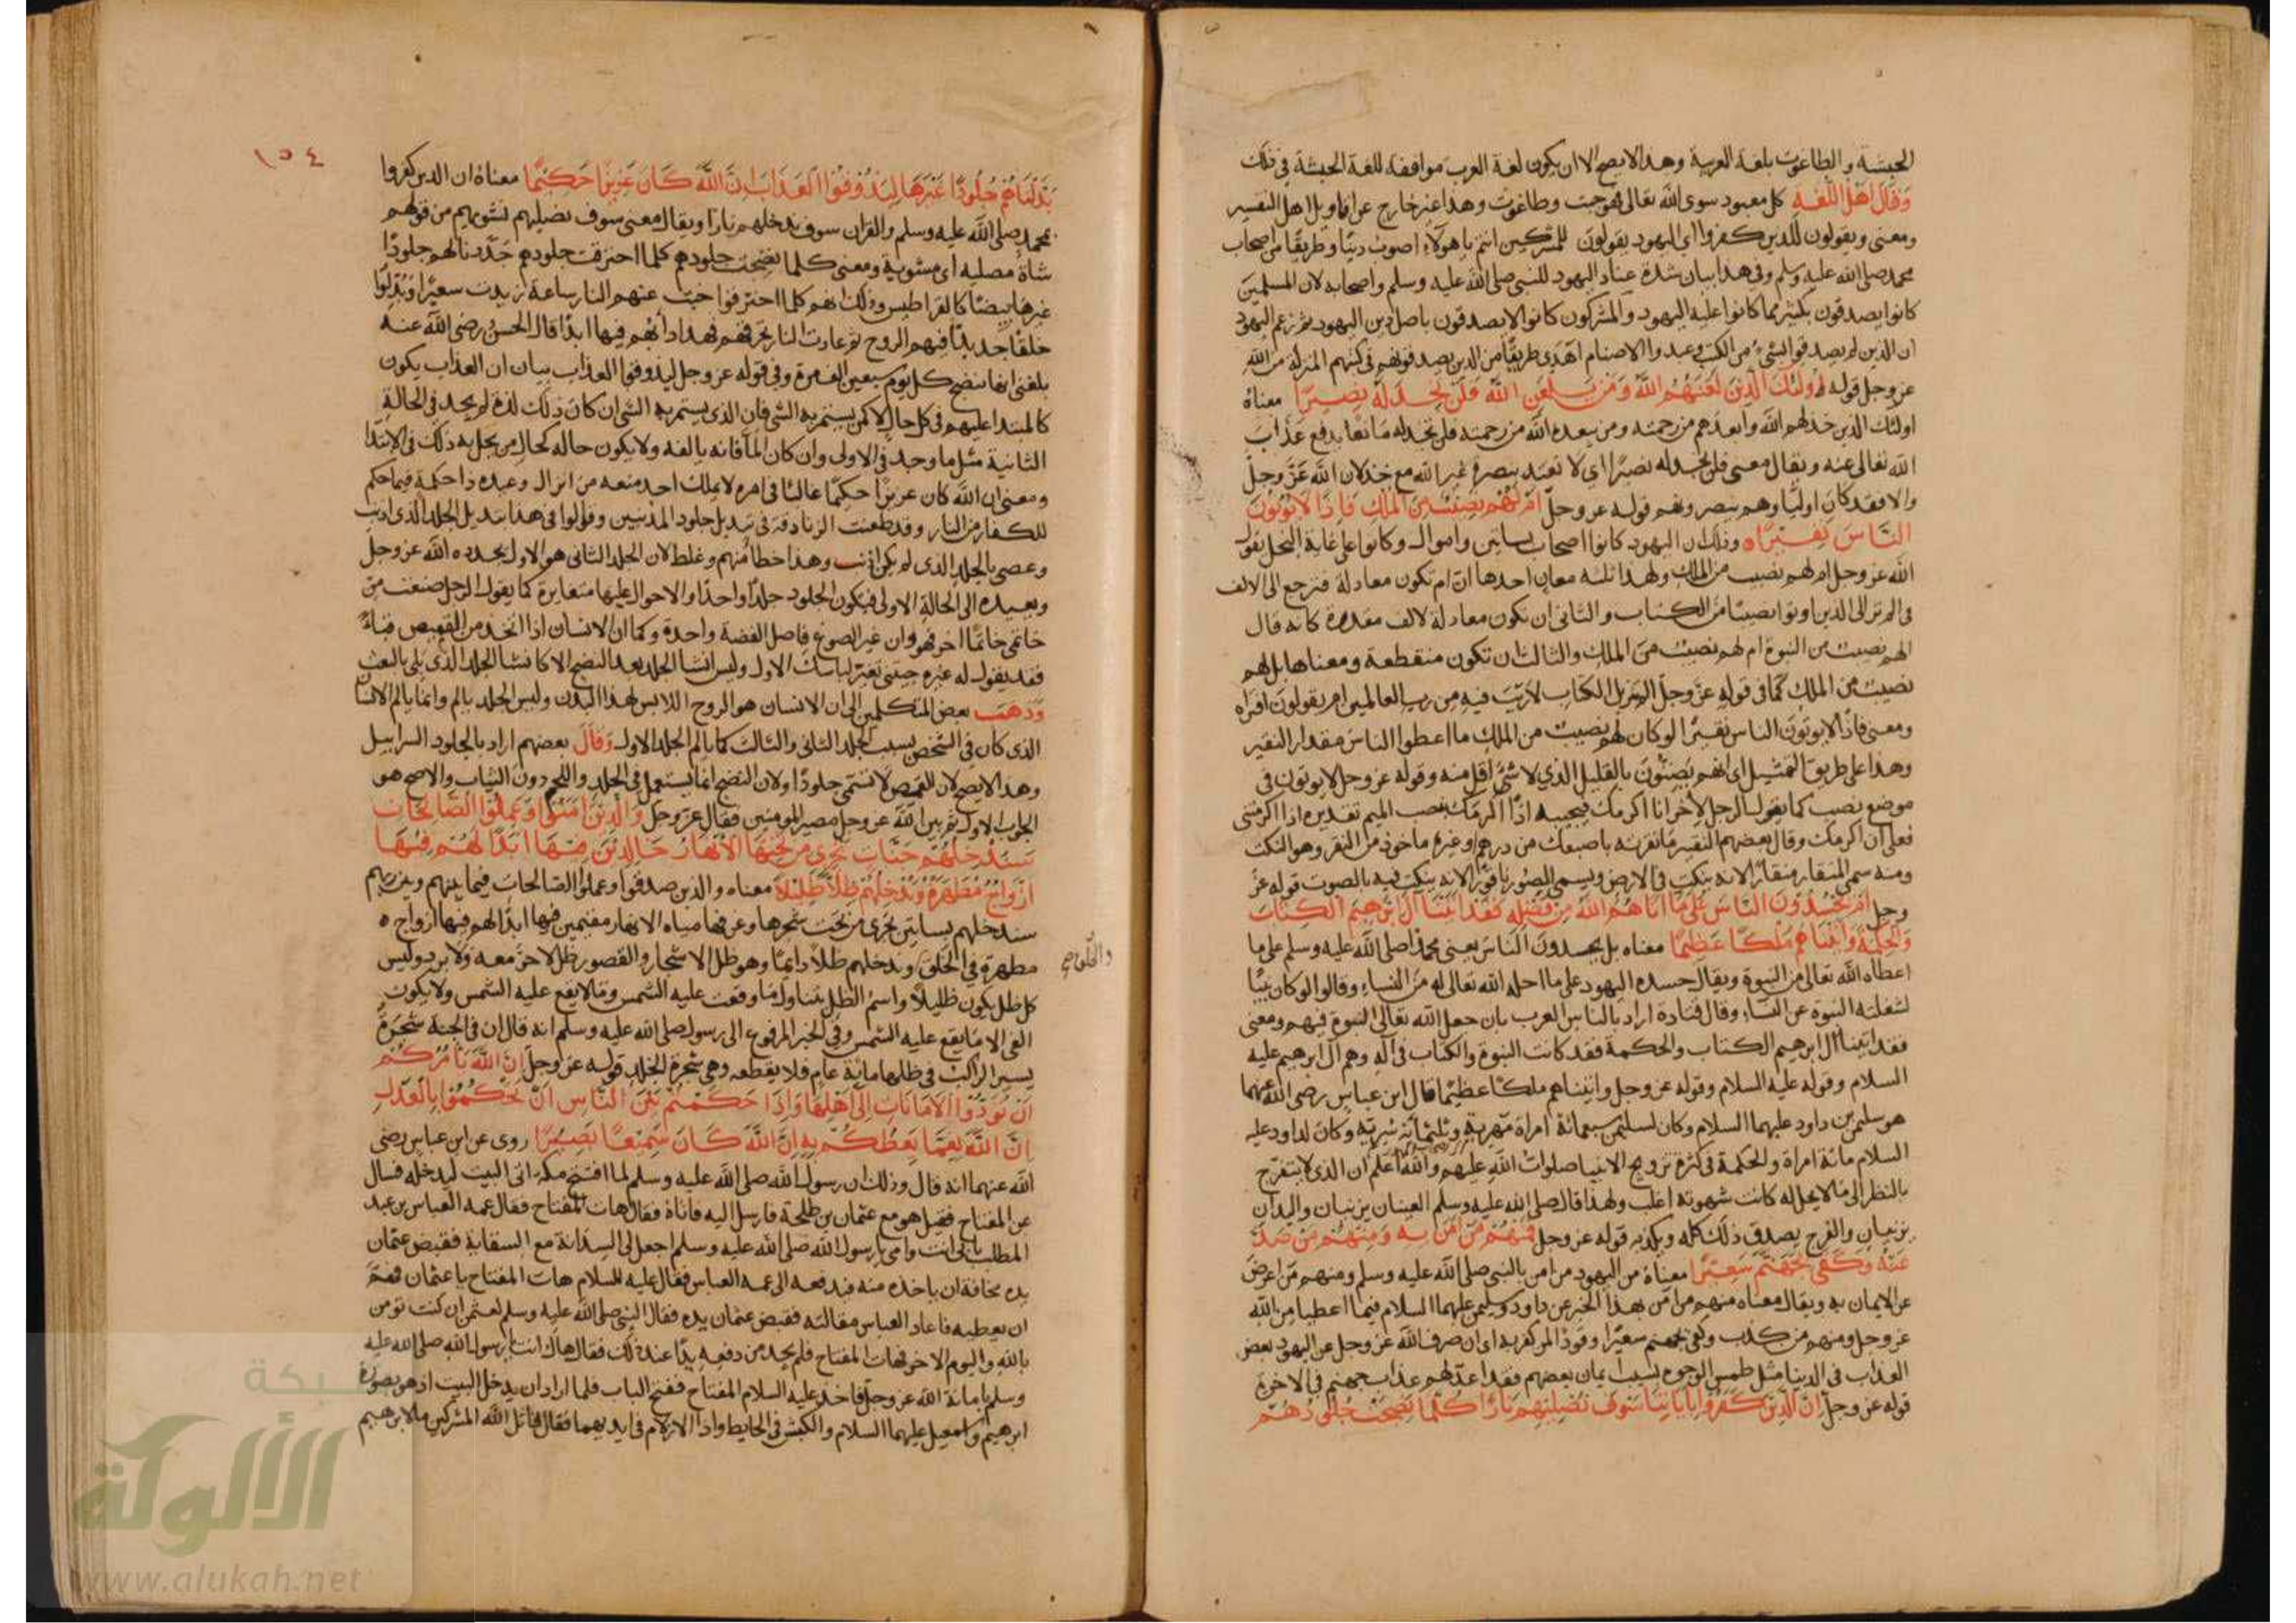 الحبشة والطاغوت بلغة العربية وهذا لا يصح الا ان يكون لغة العرب موافقة للغة الحبشة في ذلك
وقال اهل اللغة كل معبود سوى الله تعالى فهو جبت وطاغوت وهذا غير خارج عن اقاويل اهل التفسير
ومعنى ويقولون للذين كفروا اي اليهود يقولون للمشركين انتم يا هولاء اصوب دينا وطريقا من اصحاب
محمد صلى الله عليه وسلم وفي هذا بيان شدة عناد اليهود للنبي صلى الله عليه وسلم واصحابه لان المسلمين
كانوا يصدقون بكثير مما كانوا عليه اليهود والمشركون كانوا لا يصدقون باصل دين اليهود ثم زعم اليهود
ان الذين لم يصدقوا بشيء من الكتب وعبدوا الاصنام اهدى طريقا من الذين يصدقونهم في كتبهم المنزلة من الله
عز وجل قوله اولئك الذين لعنهم الله ومن يلعن الله فلن تجد له نصيرا معناه
اولئك الذين خذلهم الله وابعدهم من رحمته ومن يبعده الله من رحمته فلن تجد له مانعا يدفع عذاب
الله تعالى عنه ويقال معنى فلن تجد له نصيرا اي لا تعتد بنصرة غير الله مع خذلان الله عز وجل
والا فقد كان اوليا وهم ينصرونهم قوله عز وجل ام لهم نصيب من الملك فاذا لا يوتون
الناس نقيرا وذلك ان اليهود كانوا اصحاب بساتين واموال وكانوا على غاية البخل يقول
الله عز وجل ام لهم نصيب من الملك ولهذا ثلثه معان احدها ان ام تكون معادلة فترجع الى الالف
في الم تر الى الذين اوتوا نصيبا من الكتاب والثاني ان تكون معادلة لالف مقدرة كانه قال
الهم نصيب من النبوة ام لهم نصيب من الملك والثالث ان تكون منقطعة ومعناها بل لهم
نصيب من الملك كما في قوله عز وجل الم تنزيل الكتاب لا ريب فيه من رب العالمين ام يقولون افتراه
ومعنى فاذا لا يوتون الناس نقيرا لو كان لهم نصيب من الملك ما اعطوا الناس مقدار النقير
وهذا على طريق التمثيل اي انهم يضنون بالقليل الذي لا شئ اقل منه وقوله عز وجل لا يوتون في
موضع نصب كما يقول الرجل لأخر انا اكرمك فيجيبه اذا اكرمك بنصب الميم تقديره اذا اكرمتني
فعلى ان اكرمك وقال بعضهم النقير ما نقرته باصبعك من درهم وغيره ماخوذ من النقر وهو النكت
ومنه سمي المنقار منقارا لانه ينكت في الارض ويسمى الصور ناقورا لانه ينكت فيه بالصوت قوله عز
وجل ام يحسدون الناس على ما اتاهم الله من فضله فقد اتينا آل ابرهيم الكتاب
والحكمة واتيناهم ملكا عظيما معناه بل يحسدون الناس يعني محمدا صلى الله عليه وسلم على ما
اعطاه الله تعالى من النبوة ويقال حسده اليهود على ما احل الله تعالى له من النساء وقالوا لو كان نبيا
لشغلته النبوة عن النساء وقال قتادة اراد بالناس العرب بان جعل الله تعالى النبوة فيهم ومعنى
فقد اتينا آل ابرهيم الكتاب والحكمة فقد كانت النبوة والكتاب في آله وهم آل ابرهيم عليه
السلام وقوله عليه السلام وقوله عز وجل واتيناهم ملكا عظيما قال ابن عباس رضي الله عنهما
هو سليمن بن داود عليهما السلام وكان لسليمن سبعمائة امراة مهرية وثلثمائة سرية وكان لداود عليه
السلام مائة امراة والحكمة في كثرة تزويج الانبيا صلوات الله عليهم والله اعلم ان الذي لا يتفرج
بالنظر الى ما لا يحل له كانت شهوته اغلب ولهذا قال صلى الله عليه وسلم العينان يزنيان واليدان
يزنيان والفرج يصدق ذلك كله ويكذبه قوله عز وجل فمنهم من امن به ومنهم من صد
عنه وكفى بجهنم سعيرا معناه من اليهود من امن بالنبي صلى الله عليه وسلم ومنهم من اعرض
عن الايمان به ويقال معناه منهم من امن بهذا الخبر عن داود وسليمن عليهما السلام فيما اعطيا من الله
عز وجل ومنهم من كذب وكفى بجهنم سعيرا وقودا لمن كفر به اي ان صرف الله عز وجل عن اليهود بعض
العذاب في الدنيا مثل طمس الوجوه لسبب ايمان بعضهم فقد اعد لهم عذاب جهنم في الاخرة
قوله عز وجل ان الذين كفروا باياتنا سوف نصليهم نارا كلما نضجت جلودهم
١٥٤
بدلناهم جلودا غيرها ليذوقوا العذاب ان الله كان عزيزا حكيما معناه ان الذين كفروا
بمحمد صلى الله عليه وسلم والقران سوف ندخلهم نارا ويقال معنى سوف نصليهم نشويهم من قولهم
شاة مصلية اي مشوية ومعنى كلما نضجت جلودهم كلما احترقت جلودهم جددنا لهم جلودا
غيرها بيضا كالقراطيس وذلك انهم كلما احترقوا خبت عنهم النار ساعة ازيدت سعيرا وبدلوا
خلقا جديدا فيهم الروح ثم عادت النار تحرقهم فهذا دأبهم فيها ابدا قال الحسن رضي الله عنه
بلغني انها تنضج كل يوم سبعين الف مرة وفي قوله عز وجل ليذوقوا العذاب بيان ان العذاب يكون
كالمبتدا عليهم في كل حال لا كمن يستمر به الشي فان الذي يستمر به الشي ان كان ذلك لذة لم يجد في الحالة
الثانية مثل ما وجد في الاولى وان كان الما فانه يالفه ولا يكون حاله كحال من يحل به ذلك في الابتدا
ومعنى ان الله كان عزيزا حكيما غالبا في امره لا يملك احد منعه من انزال وعيده ذا حكمة فيما حكم
للكفار من النار وقد طعنت الزنادقة في تبديل جلود المذنبين وقالوا في هذا تبديل الجلد الذي اذنب
وعصى بالجلد الذي لم يكن اذنب وهذا خطا منهم وغلط لان الجلد الثاني هو الاول يجدده الله عز وجل
ويعيده الى الحالة الاولى فيكون الجلود جلدا واحدا والاحوال عليها متغايرة كما يقول الرجل صنعت من
خاتمي خاتما اخر فهو وان غير الصوغ فاصل الفضة واحدة وكما ان الانسان اذا اتخذ من القميص قباء
فقد يقول له غيره جيتني بغير لباسك الاول وليس انشا الجلد بعد النضج الا كانشا الجلد الذي بلي بالبعث
وذهب بعض المتكلمين الى ان الانسان هو الروح اللابس لهذا البدن وليس الجلد يالم وانما يالم الانسان
الذي كان في الشخص بسبب الجلد الثاني والثالث كما يالم الجلد الاول وقال بعضهم اراد بالجلود السرابيل
وهذا لا يصح لان القمص لا تسمى جلودا ولان النضج انما يستعمل في الجلد واللحم دون الثياب والاصح هو
الجواب الاول ثم بين الله عز وجل مصير المومنين فقال عز وجل والذين امنوا وعملوا الصالحات
سندخلهم جنات تجري من تحتها الانهار خالدين فيها ابدا لهم فيها
ازواج مطهرة وندخلهم ظلا ظليلا معناه والذين صدقوا وعملوا الصالحات فيما بينهم وبين ربهم
سندخلهم بساتين تجري من تحت شجرها وغرفها مياه الانهار مقيمين فيها ابدا لهم فيها ازواج
مطهرة في الخلق وندخلهم ظلا دايما وهو ظل الاشجار والقصور ظل لا حر معه ولا برد وليس
والخلق صح
كل ظل يكون ظليلا واسم الظل يتناول ما وقعت عليه الشمس وما لا يقع عليه الشمس ولا يكون
الفي الا ما يقع عليه الشمس وفي الخبر المرفوع الى رسول صلى الله عليه وسلم انه قال ان في الجنة شجرة
يسير الراكب في ظلها مائة عام فلا يقطعه وهي شجرة الخلد قوله عز وجل ان الله يامركم
ان تودوا الامانات الى اهلها واذا حكمتم بين الناس ان تحكموا بالعدل
ان الله نعما يعظكم به ان الله كان سميعا بصيرا روى عن ابن عباس رضي
الله عنهما انه قال وذلك ان رسول الله صلى الله عليه وسلم لما افتتح مكة اتى البيت ليدخله فسال
عن المفتاح فقيل هو مع عثمان بن طلحة فارسل اليه فاتاه فقال هات المفتاح فقال عمه العباس بن عبد
المطلب بابي انت وامي يا رسول الله صلى الله عليه وسلم اجعل لي السدانة مع السقاية فقبض عثمان
يده مخافة ان ياخذه منه فيدفعه الى عمه العباس فقال عليه السلام هات المفتاح يا عثمان فهم
ان يعطيه فاعاد العباس مقالته فقبض عثمان يده فقال النبي صلى الله عليه وسلم لعثمن ان كنت تومن
بالله واليوم الاخر فهات المفتاح فلم يجد من دفعه بدا عند ذلك فقال هاك انت يا رسول الله صلى الله عليه
وسلم بامانة الله عز وجل فاخذ عليه السلام المفتاح ففتح الباب فلما اراد ان يدخل البيت اذ هو بصورة
ابرهيم واسمعيل عليهما السلام والكبش في الحايط واذا الازلام في ايديهما فقال قاتل الله المشركين ما لابرهيم
شبكة
الألوكة
www.alukah.net